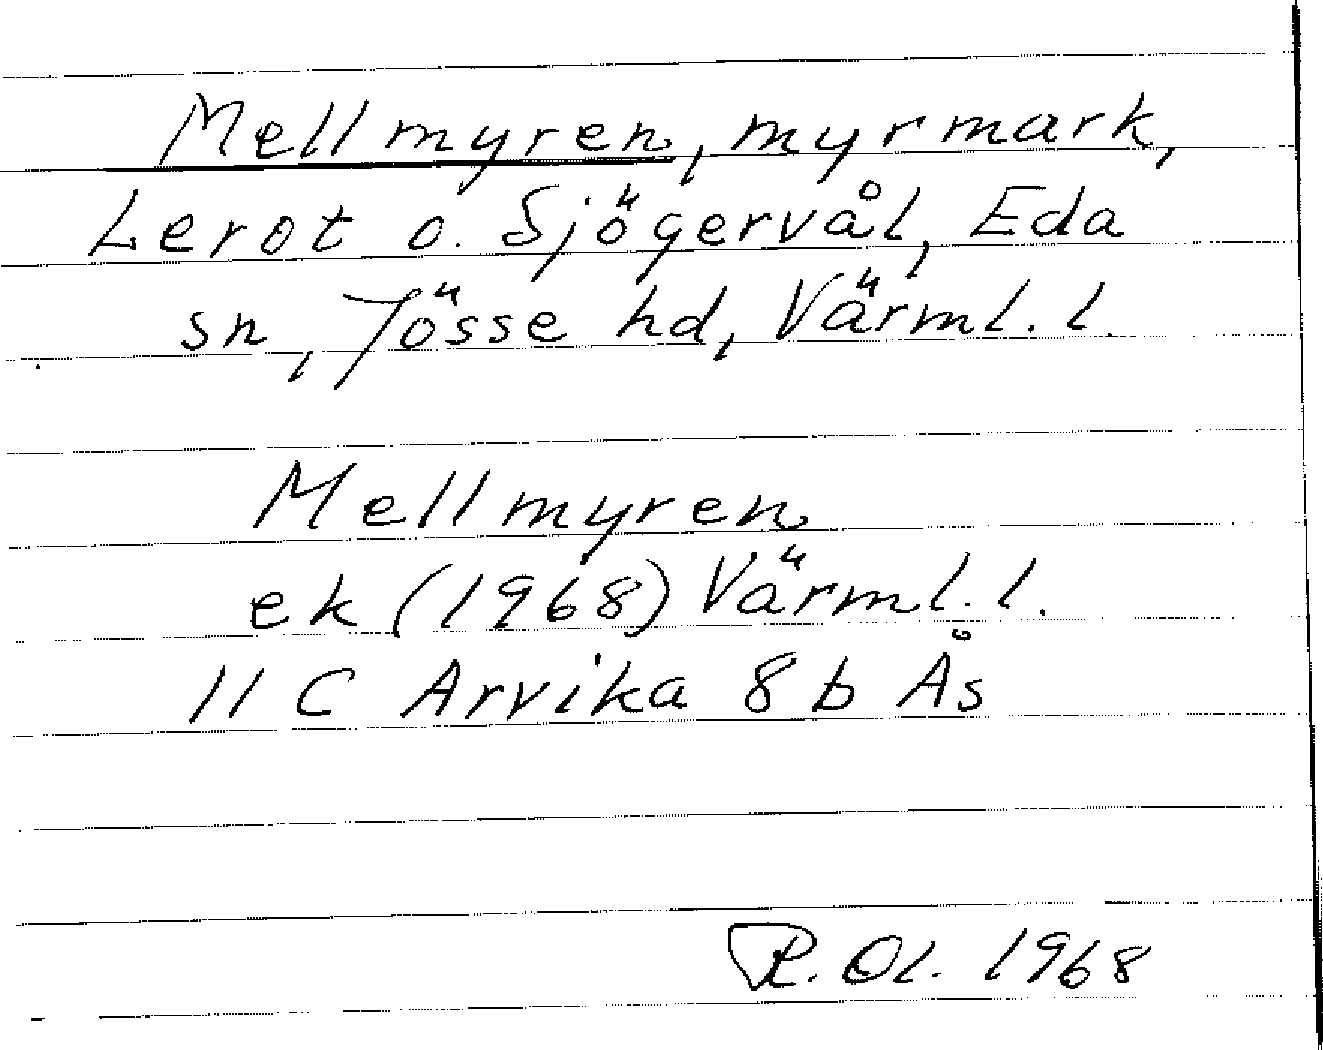 Mellmyren, myrmark,
Lerot o. Sjögervål, Eda
sn, Jösse hd, Värml. l.
Mellmyren
ek (1968) Värml. l.
11 C Arvika 8 b Ås
R. Ol. 1968